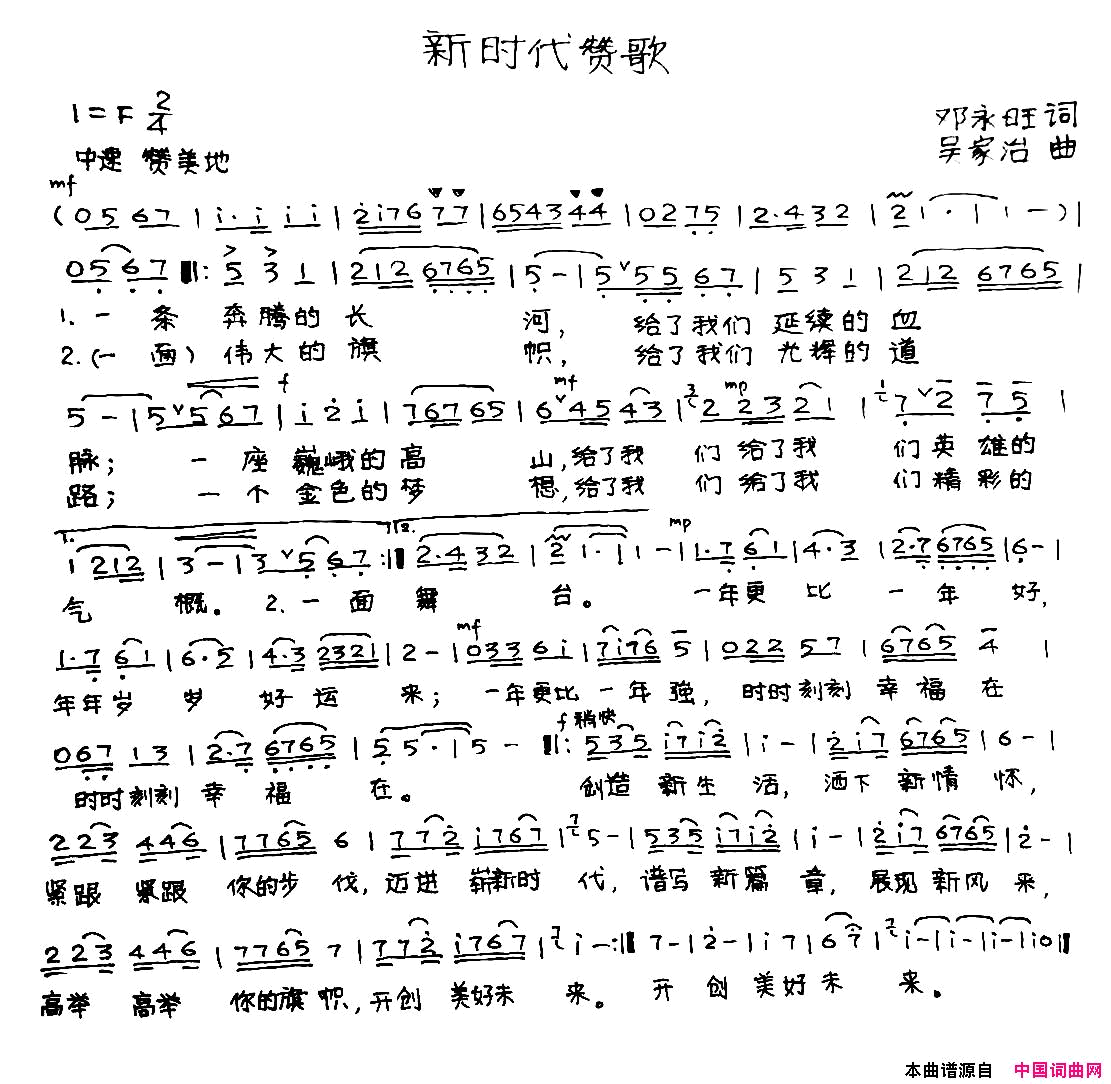 新时代赞歌
1=F 2/4
邓永旺词
中速 赞美地
吴家治 曲
mf
(0567|i·i i i|2i76 77|6543 44|0275|2·432|2 1·|1 -)|
0567 ‖: 5 3 1|212 6765|5-|5 ∨55 67|5 3 1|212 6765|
1. 一 条 奔腾的 长 河, 给了我们 延续的 血
2.(一 面) 伟大的 旗 帜, 给了我们 光辉的 道
f mf mp
5-|5∨567|i 2 i|76765|6∨45 43|3 2 23 21|1 7∨2 7 5|
脉; 一 座 巍峨的 高 山,给了我 们 给了我 们英雄的
路; 一 个 金色的 梦 想,给了我 们 给了我 们精彩的
1. 2. mp
1 212|3-|3∨567:‖2·432|2 1·|1 -|1·7 61|4·3|2·7 6765|6-|
气 概。 2.一 面 舞 台。 一年更 比 一 年 好,
mf
1·7 61|6·5|4·3 2321|2-|033 6i|7i76 5|022 57|6765 4|
年年岁 岁 好 运 来; 一年更比 一 年 强, 时时刻刻 幸 福 在
f 稍快
067 13|2·7 6765|5 5·|5 - ‖: 535 i7i2|i-|2i7 6765|6-|
时时刻刻 幸 福 在。 创造 新生 活, 洒下 新情 怀,
223 446|7765 6|772 i767|7 5-|535 i7i2|i-|2i7 6765|2-|
紧跟 紧跟 你的步 伐,迈进 崭新时 代, 谱写 新篇 章, 展现 新风 来,
223 446|7765 7|772 i767|7 i-:‖7-|2-|i7|67|7 i-|i-|i-|i0‖
高举 高举 你的旗 帜,开创 美好未 来。 开 创 美好 未 来。
本曲谱源自 中国词曲网